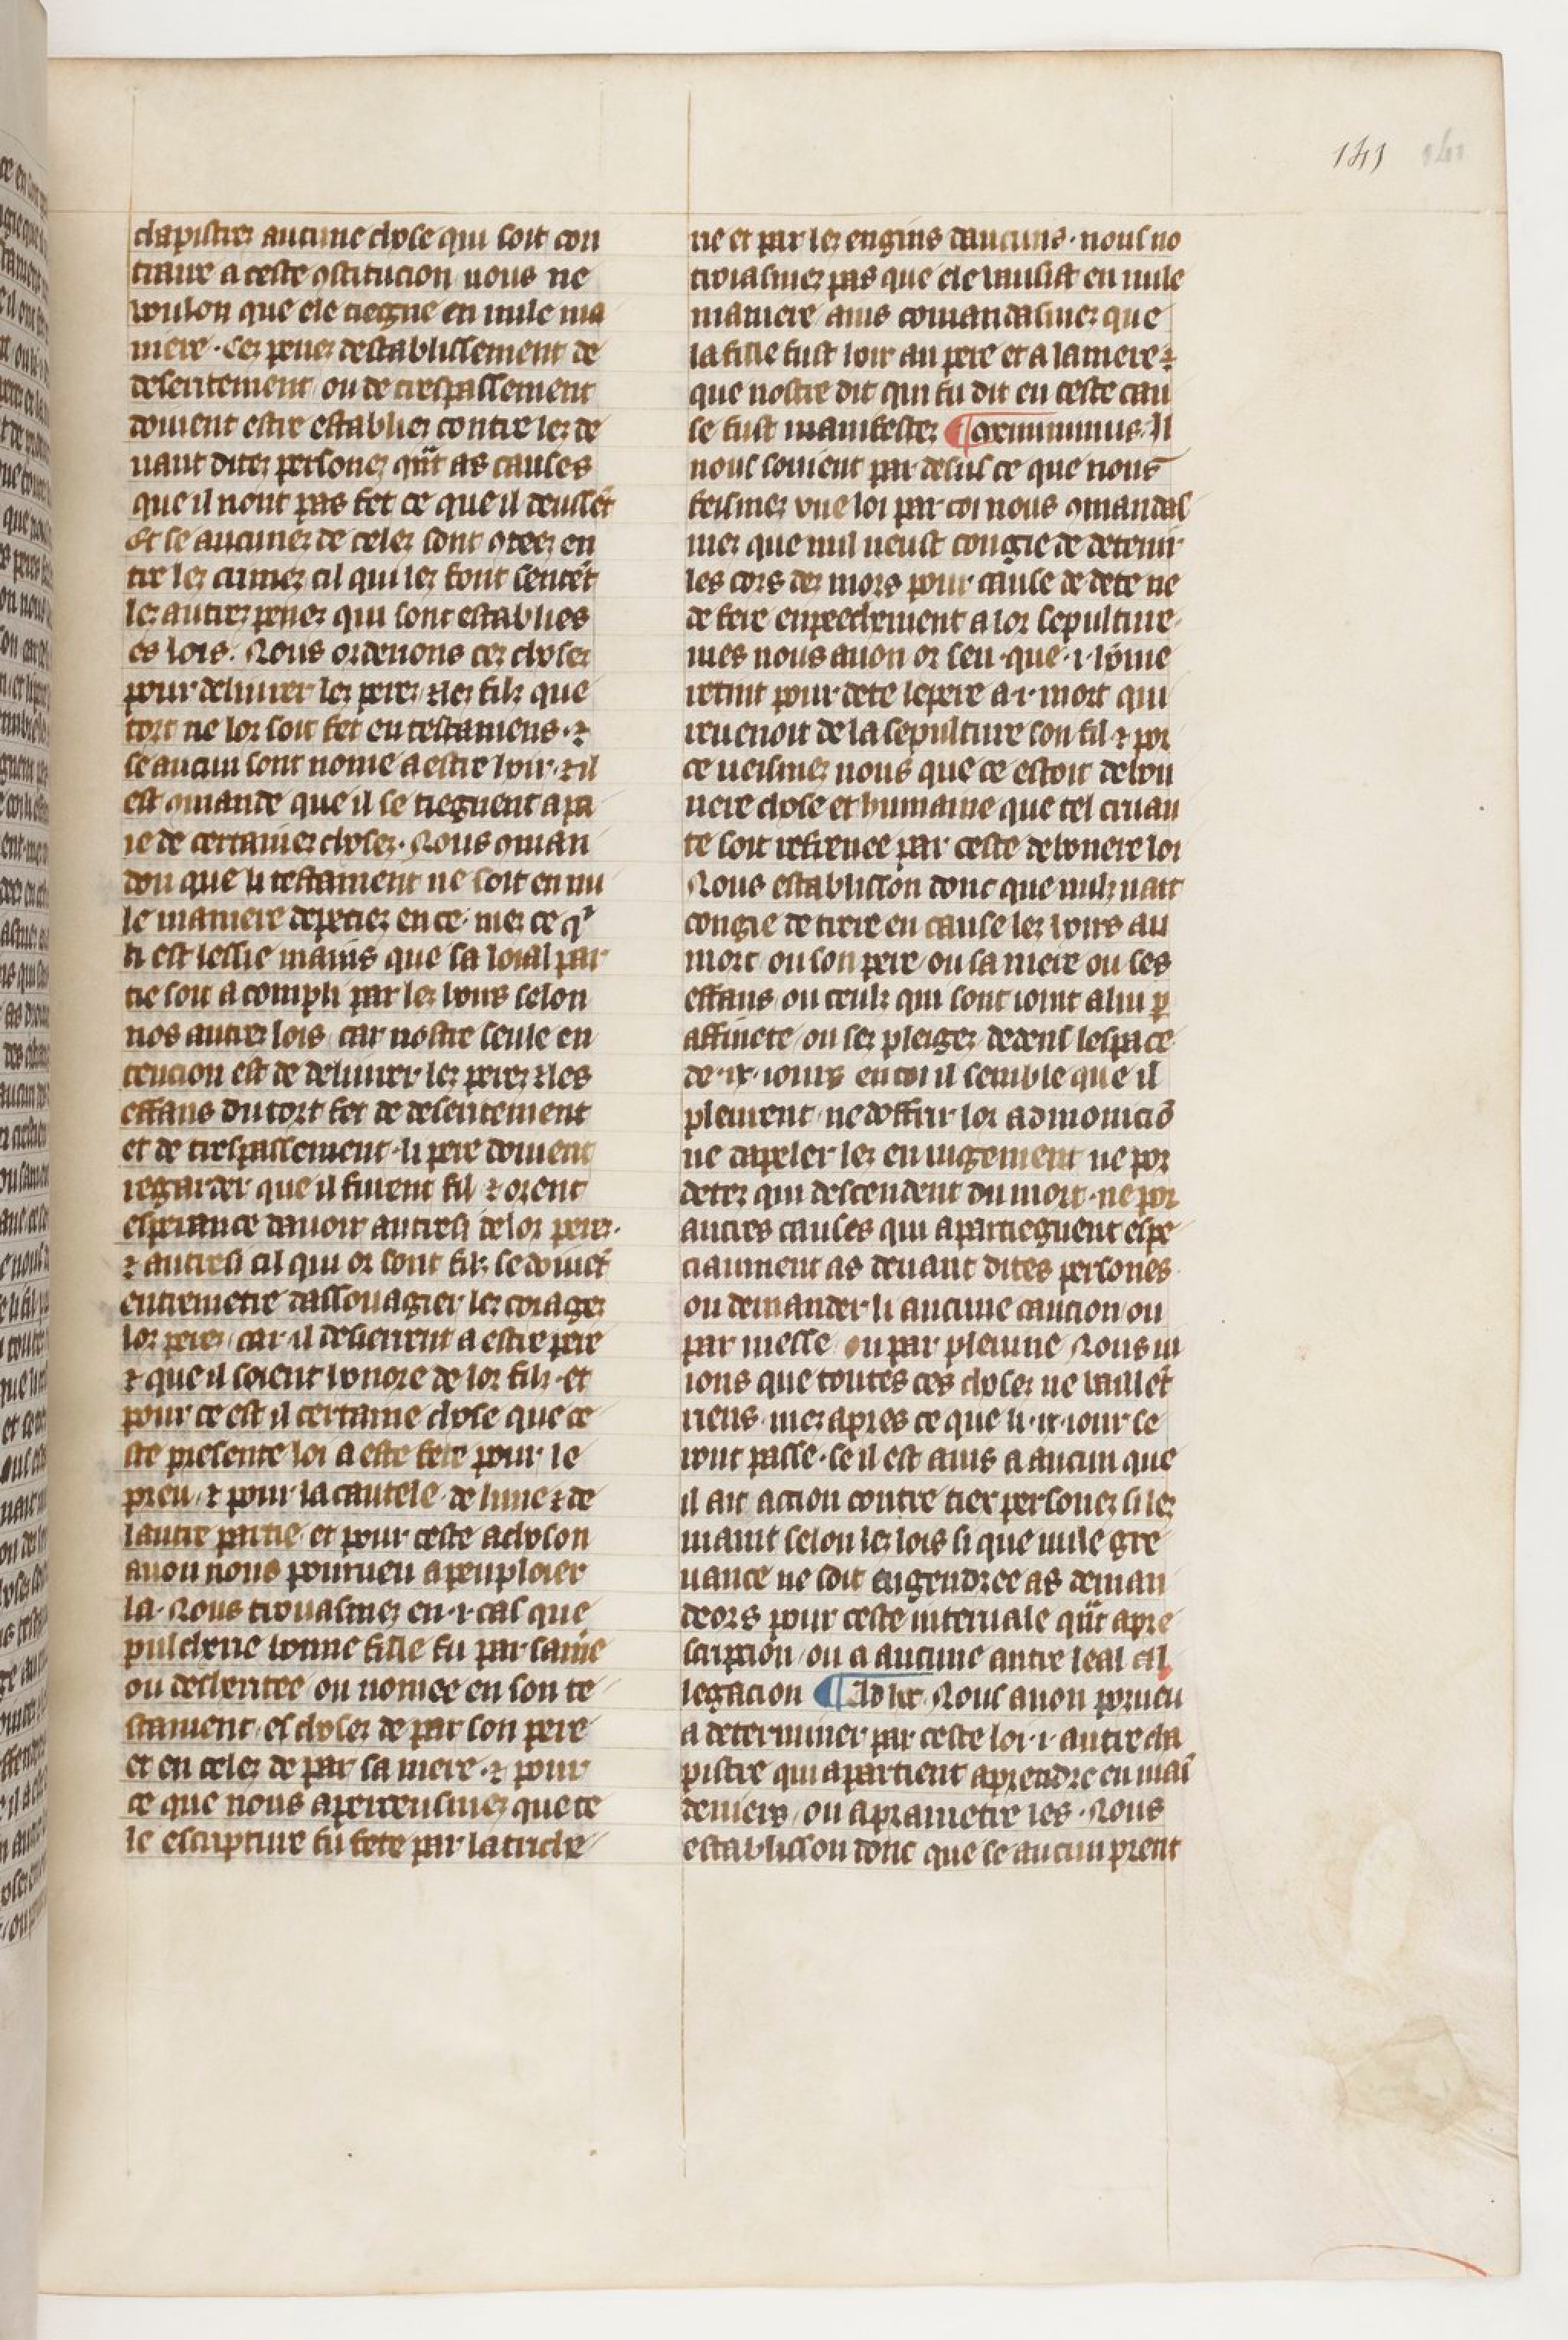 141
chapistre aucune chose qui soit con
traire a ceste ɔstitucion nous ne
voulon que ele tiegne en nule ma
niere · Ces penes destablissement de
deseritement ou de trespassement
doiuent estre establies contre les de
uant dites persones qͣt as causes
que il nont pas fet ce que il deussēt
Et se aucunes de celes sont ɔtees en
tre les crimes cil qui les font sentēt
les autres penes qui sont establies
es lois. Nous ordenons ces choses
pour deliurer les peres ⁊ les filz que
tort ne lor soit fet en testamens · ⁊
se aucun sont nome a estre hoir · ⁊ il
est ɔmande que il se tieguent a pa
ie de certaines choses · Nous ɔman
don que li testament ne soit en nu
le maniere depeciez en ce · mes ce qͥ
li est lessie mains que sa loial par
tie soit acompli par les hoirs selon
nos autres lois car nostre seule en
tencion est de deliurer les peres ⁊ les
effans du tort fet de deseritement
et de trespassement · li pere doiuent
regarder que il furent fil ⁊ orent
esperance dauoir autresi de lor peres ·
⁊ autresi cil qui or sont filz se doiuēt
entremetre dassouagier les corages
lor peres car il desierrent a estre pere
⁊ que il soient honore de lor filz · et
pour ce est il certaine chose que ce
ste presente loi a este fete pour le
preu · ⁊ pour la cautele de lune ⁊ de
lautre partie et pour ceste achoson
auon nous pourueu a peuploier
la · Nous trouasmes en · i · cas que
pulcherie bonne fille fu par sa mē
ou desheritee ou nomee en son te
stament es choses de par son pere
et en celes de par sa mere · ⁊ pour
ce que nous aperceusmes que ce
le escripture fu fete par la triche
rie et par les engins daucuns · nous no
troiasmes pas que ele vausist en nule
maniere ains comandasmes que
la fille fust hoir au pere et a la mere ⁊
que nostre dit qui fu dit en ceste cau
se fust manifestez ¶ Meminimus · Il
nous souient par desus ce que nous
feismes vne loi par coi nous ɔmandas
mes que nul neust congie de detenir
les cors des mors pour cause de dete ne
de fere enpeechement a lor sepulture
mes nous auon or seu · que · i · home
retint pour dete le pere a · i · mort qui
reuenoit de la sepulture son fil · ⁊ por
ce veismes nous que ce estoit debon
nere chose et humaine que tel cruau
te soit refrenee par ceste debonere loi
Nous establisson donc que nulz nait
congie de trere en cause les hoirs au
mort ou son pere ou sa mere ou ses
effans ou ceulz qui sont ioint a lui ꝑ
affinete ou ses pleiges dedens lespace
de · ix · iours en coi il semble que il
pleurent ne doffrir lor admoniciō
ne dapeler les en iugement ne por
detes qui descendent du mort · ne por
autres causes qui apartieguent espe
ciaument as deuant dites persones
ou demander li aucune caution ou
par messe ou par pleuine Nous iu
ions que toutes ces choses ne vaillēt
riens · mes apres ce que li · ix · iour se
ront passe · se il est auis a aucun que
il ait action contre tiex persones si les
maint selon les lois si que nule gre
uance ne soit engendree as deman
deors pour ceste interuale qͣt a pre
scripcion / ou a aucune autre leal al
legacion ¶ Ad hec Nous auon porueu
a determiner par ceste loi · i · autre cha
pistre qui apartient a prendre en mai
deniers / ou a prametre les · Nous
establisson donc que se aucun prent